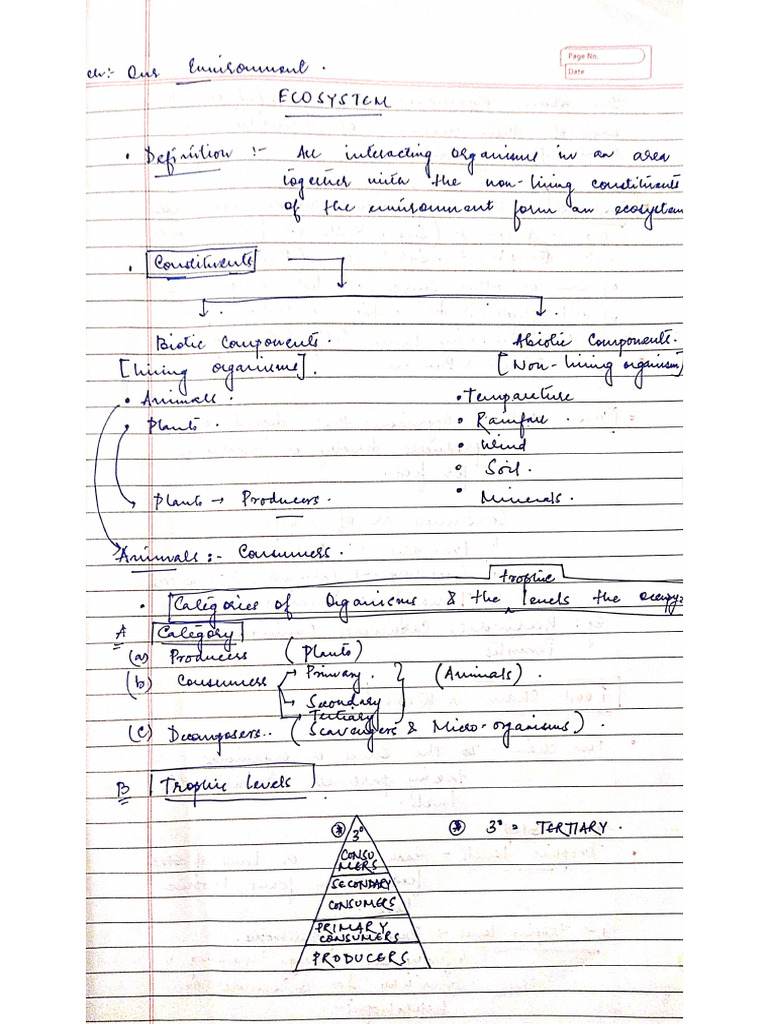 Page No.
Date
ch:- Our Environment.
ECOSYSTEM
• Definition :- All interacting organisms in an area
together with the non-living constituents
of the environment form an ecosystem
• Constituents
Biotic Components. Abiotic Components.
[Living organisms]. [Non-living organism]
• Animals. • Temparature
• Plants. • Rainfall.
• Wind
• Soil.
Plants → Producers. • Minerals.
Animals :- Consumers.
trophic
• Categories of Organisms & the levels the occupy:
A Category
(a) Producers (Plants)
(b) Consumers → Primary. (Animals).
→ Secondary
→ Tertiary
(c) Decomposers.. (Scavengers & Micro-organisms).
B Trophic levels
* 3° * 3° = TERTIARY.
CONSU
MERS
SECONDARY
CONSUMERS
PRIMARY
CONSUMERS
PRODUCERS